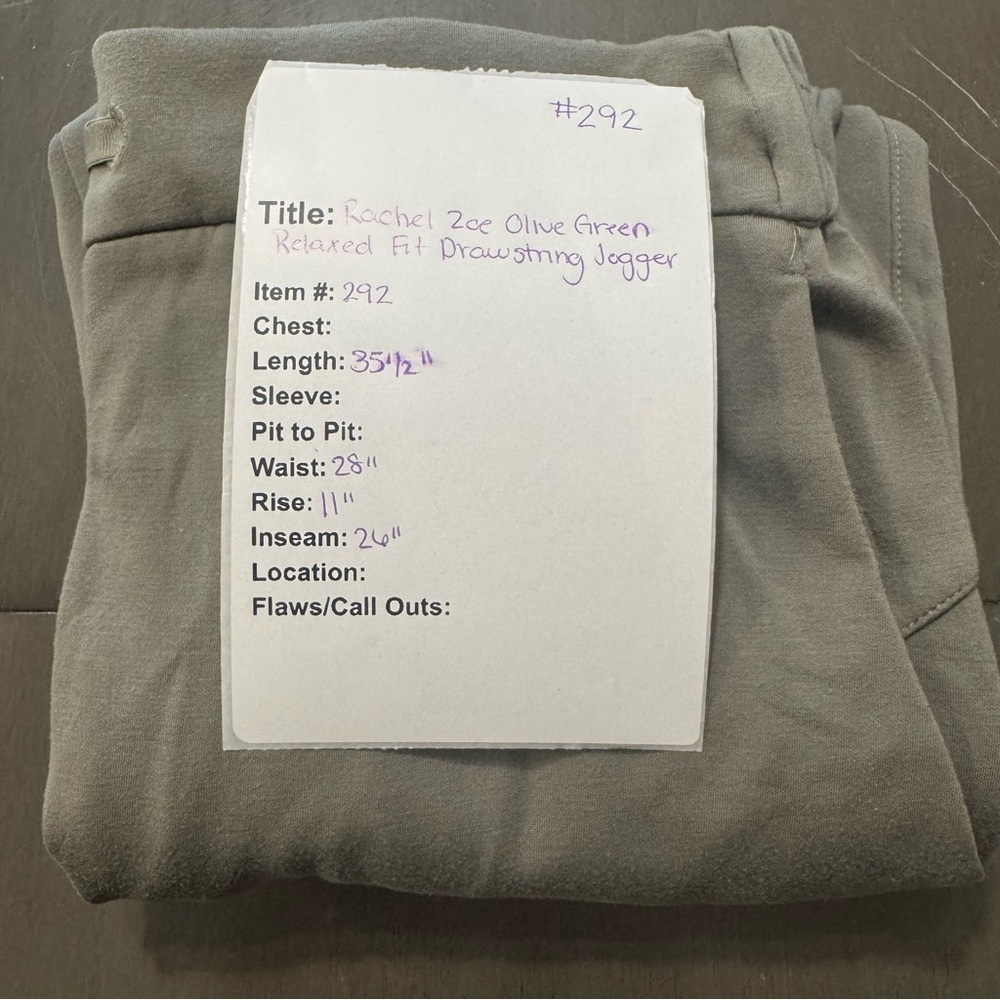 #292
Title: Rachel Zoe Olive Green
Relaxed Fit Drawstring Jogger
Item #: 292
Chest:
Length: 35 1/2"
Sleeve:
Pit to Pit:
Waist: 28"
Rise: 11"
Inseam: 26"
Location:
Flaws/Call Outs: